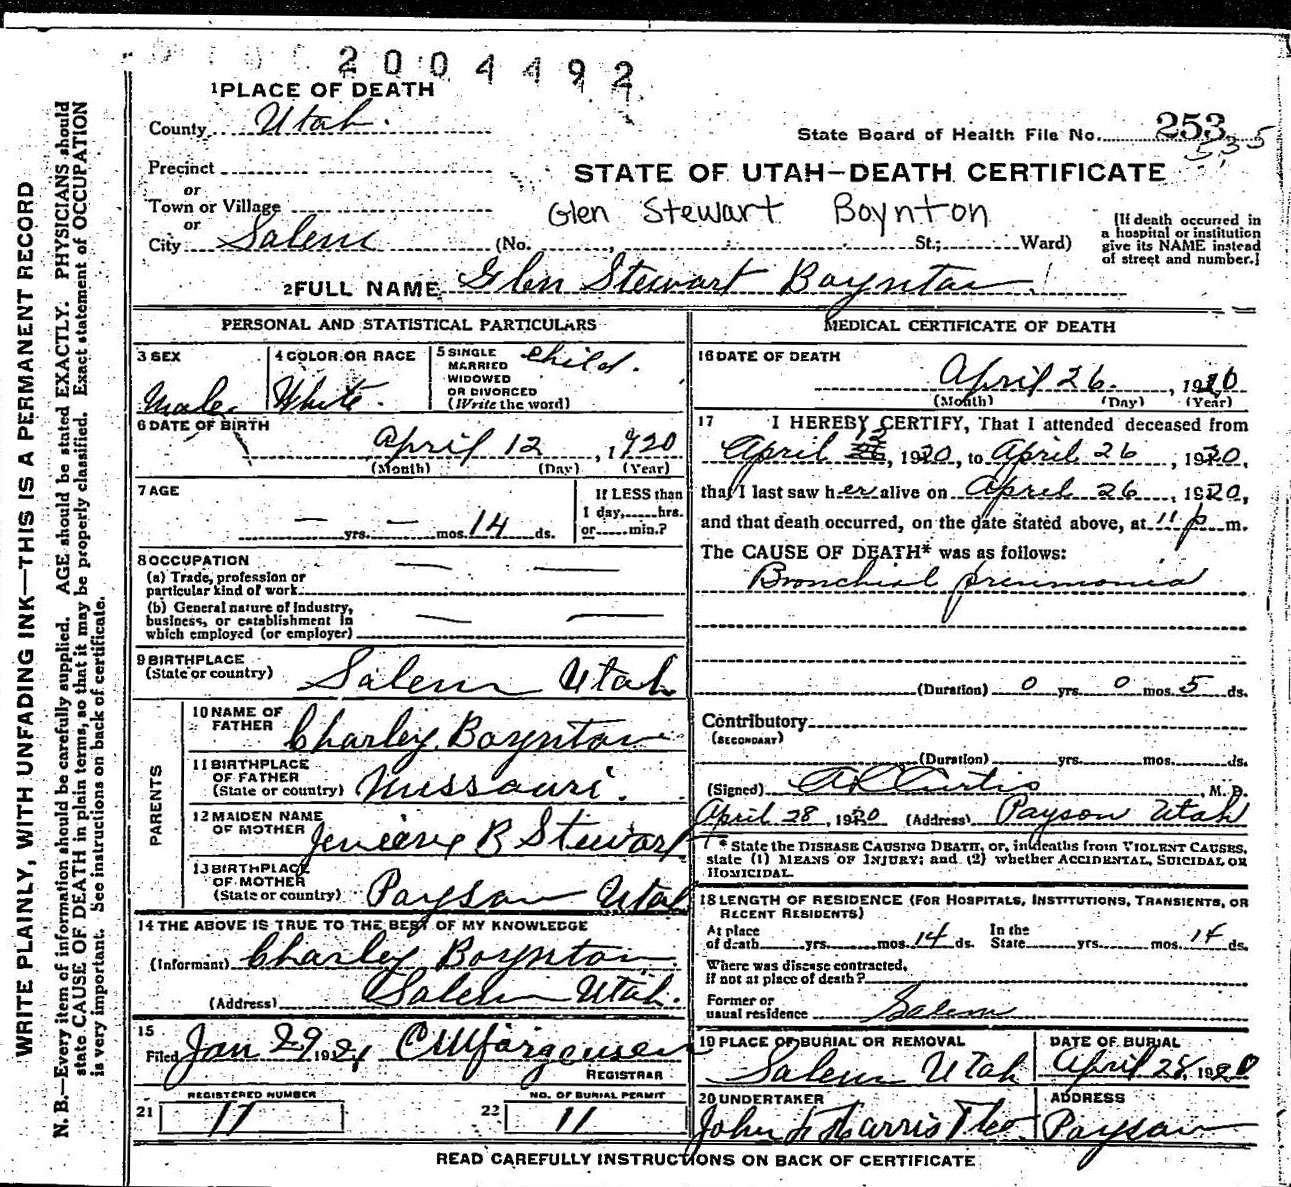 2004492
1 PLACE OF DEATH
County Utah.
State Board of Health File No. 253
535
Precinct
or
Town or Village
or
City Salem (No. , St.; Ward)
STATE OF UTAH—DEATH CERTIFICATE
Glen Stewart Boynton
[If death occurred in
a hospital or institution
give its NAME instead
of street and number.]
2 FULL NAME Glen Stewart Boynton
PERSONAL AND STATISTICAL PARTICULARS
3 SEX
Male
4 COLOR OR RACE
White.
5 SINGLE
MARRIED
WIDOWED
OR DIVORCED
(Write the word)
child.
6 DATE OF BIRTH
April 12, 1920
(Month) (Day) (Year)
7 AGE
— yrs. — mos. 14 ds.
If LESS than
1 day, hrs.
or min.?
8 OCCUPATION
(a) Trade, profession or
particular kind of work
(b) General nature of Industry,
business, or establishment in
which employed (or employer)
9 BIRTHPLACE
(State or country) Salem Utah
PARENTS
10 NAME OF
FATHER Charley Boynton
11 BIRTHPLACE
OF FATHER
(State or country) Missouri.
12 MAIDEN NAME
OF MOTHER B Stewart
13 BIRTHPLACE
OF MOTHER
(State or country) Payson Utah
14 THE ABOVE IS TRUE TO THE BEST OF MY KNOWLEDGE
(Informant) Charley Boynton
(Address) Salem Utah.
15
Filed Jan 29 1921 C M Jorgensen
REGISTRAR
REGISTERED NUMBER
21 17
NO. OF BURIAL PERMIT
22 11
MEDICAL CERTIFICATE OF DEATH
16 DATE OF DEATH
April 26, 1920
(Month) (Day) (Year)
17 I HEREBY CERTIFY, That I attended deceased from
April 12, 1920, to April 26, 1920,
that I last saw her alive on April 26, 1920,
and that death occurred, on the date stated above, at 11 p m.
The CAUSE OF DEATH* was as follows:
Bronchial pneumonia
(Duration) 0 yrs. 0 mos. 5 ds.
Contributory
(SECONDARY)
(Duration) yrs. mos. ds.
(Signed) A L Curtis, M. D.
April 28, 1920 (Address) Payson Utah
* State the DISEASE CAUSING DEATH, or, in deaths from VIOLENT CAUSES,
state (1) MEANS OF INJURY; and (2) whether ACCIDENTAL, SUICIDAL OR
HOMICIDAL.
18 LENGTH OF RESIDENCE (FOR HOSPITALS, INSTITUTIONS, TRANSIENTS, OR
RECENT RESIDENTS)
At place
of death yrs. mos. 14 ds. In the
State yrs. mos. 14 ds.
Where was disease contracted,
if not at place of death?
Former or
usual residence Salem
19 PLACE OF BURIAL OR REMOVAL
Salem Utah
DATE OF BURIAL
April 28, 1920
20 UNDERTAKER
John F Harris & Co.
ADDRESS
Payson
READ CAREFULLY INSTRUCTIONS ON BACK OF CERTIFICATE
WRITE PLAINLY, WITH UNFADING INK—THIS IS A PERMANENT RECORD
N. B.—Every item of information should be carefully supplied. AGE should be stated EXACTLY. PHYSICIANS should
state CAUSE OF DEATH in plain terms, so that it may be properly classified. Exact statement of OCCUPATION
is very important. See instructions on back of certificate.